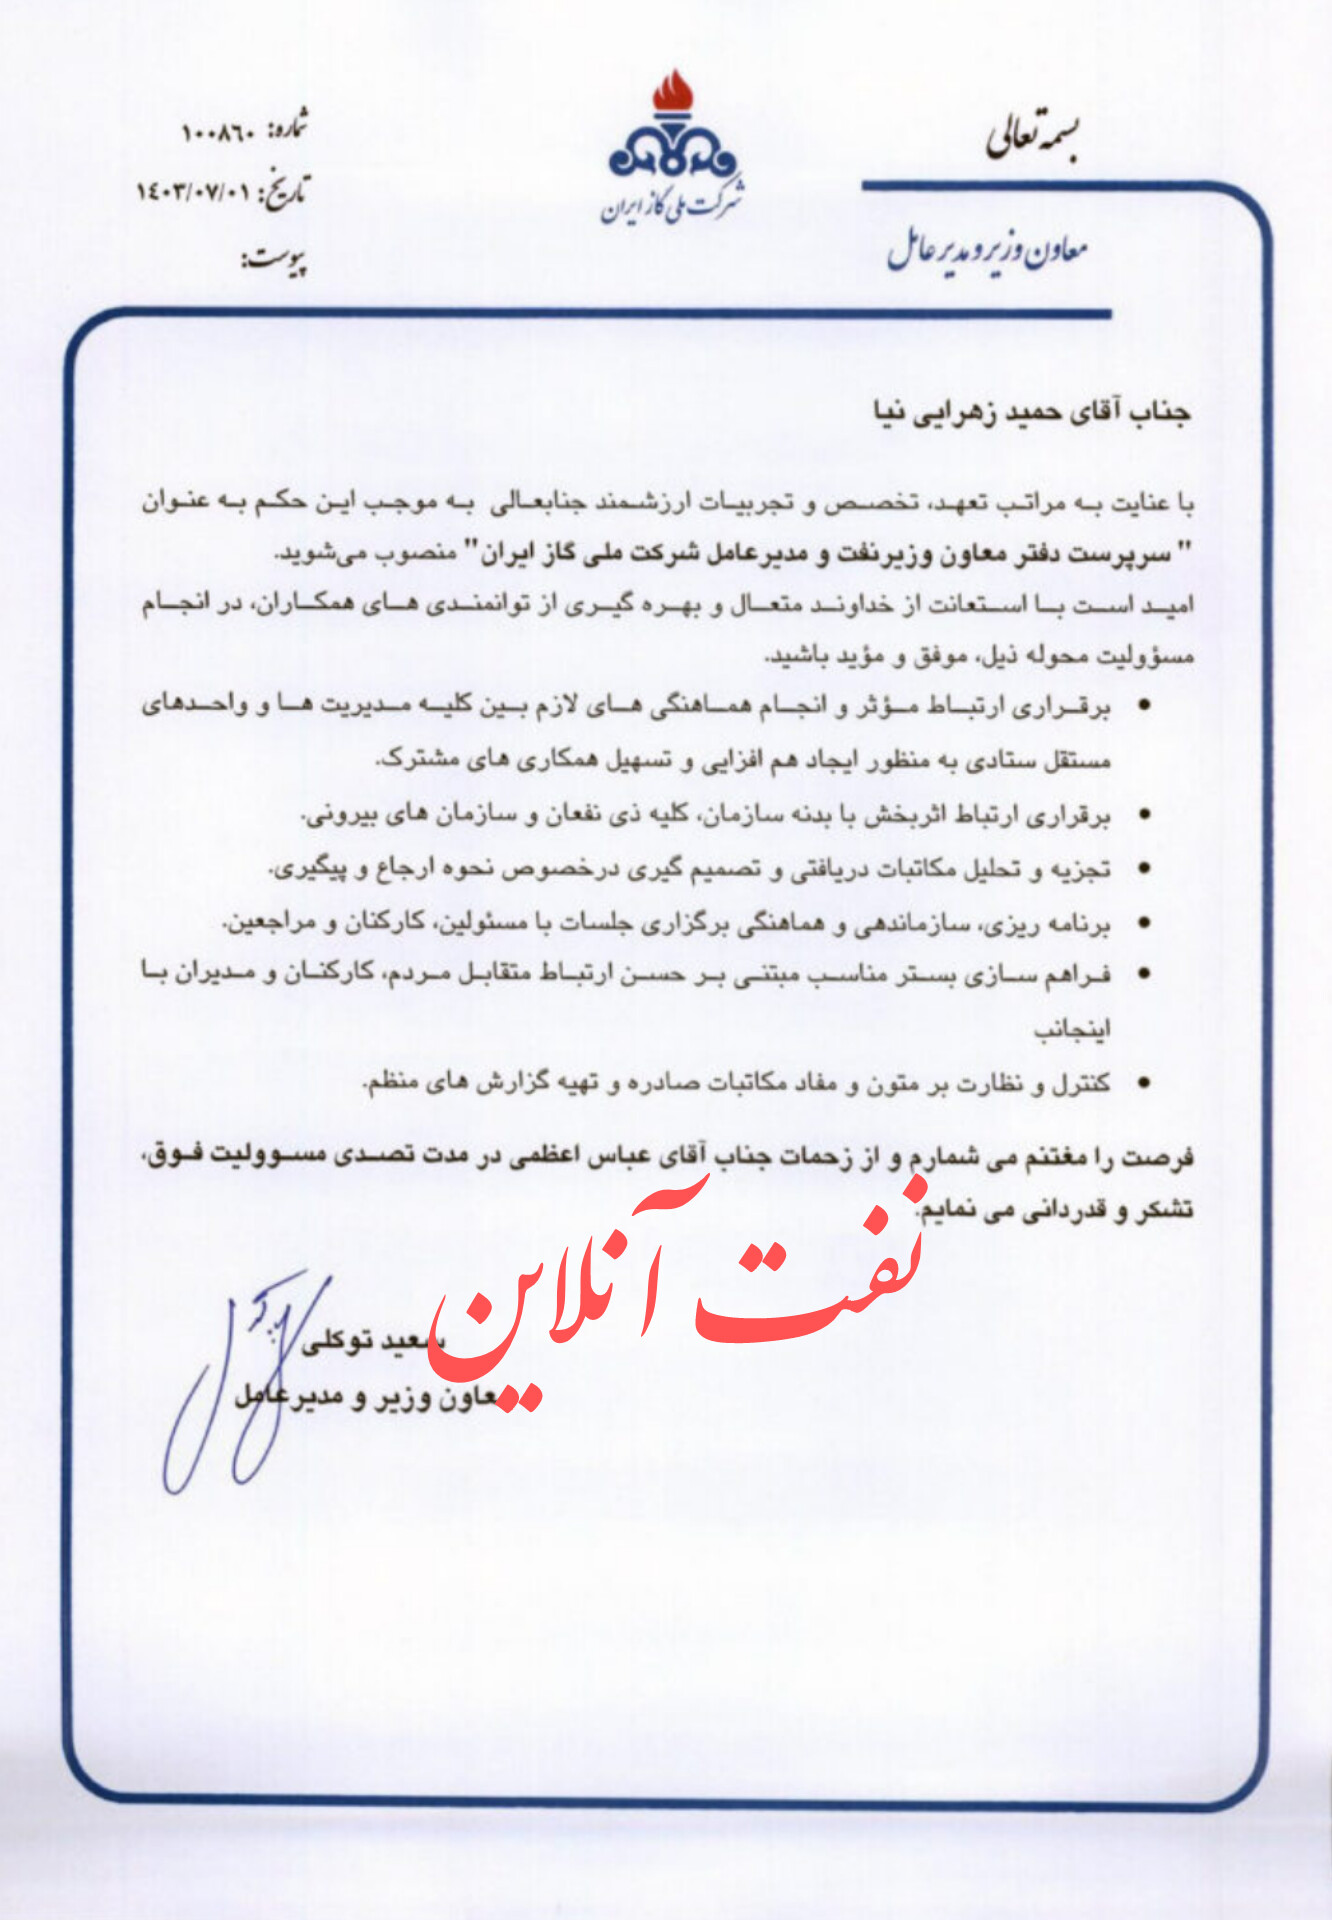 بسمه تعالی
معاون وزیر و مدیر عامل
شرکت ملی گاز ایران
شماره: ۱۰۰۸٦۰
تاریخ: ۱٤۰۳/۰۷/۰۱
پیوست:
جناب آقای حمید زهرایی نیا
با عنایت به مراتب تعهد، تخصص و تجربیات ارزشمند جنابعالی به موجب این حکم به عنوان
" سرپرست دفتر معاون وزیرنفت و مدیرعامل شرکت ملی گاز ایران" منصوب می‌شوید.
امید است با استعانت از خداوند متعال و بهره گیری از توانمندی های همکاران، در انجام
مسؤولیت محوله ذیل، موفق و مؤید باشید.
• برقراری ارتباط مؤثر و انجام هماهنگی های لازم بین کلیه مدیریت ها و واحدهای
مستقل ستادی به منظور ایجاد هم افزایی و تسهیل همکاری های مشترک.
• برقراری ارتباط اثربخش با بدنه سازمان، کلیه ذی نفعان و سازمان های بیرونی.
• تجزیه و تحلیل مکاتبات دریافتی و تصمیم گیری درخصوص نحوه ارجاع و پیگیری.
• برنامه ریزی، سازماندهی و هماهنگی برگزاری جلسات با مسئولین، کارکنان و مراجعین.
• فراهم سازی بستر مناسب مبتنی بر حسن ارتباط متقابل مردم، کارکنان و مدیران با
اینجانب
• کنترل و نظارت بر متون و مفاد مکاتبات صادره و تهیه گزارش های منظم.
فرصت را مغتنم می شمارم و از زحمات جناب آقای عباس اعظمی در مدت تصدی مسوولیت فوق،
تشکر و قدردانی می نمایم.
نفت آنلاین
سعید توکلی
معاون وزیر و مدیرعامل